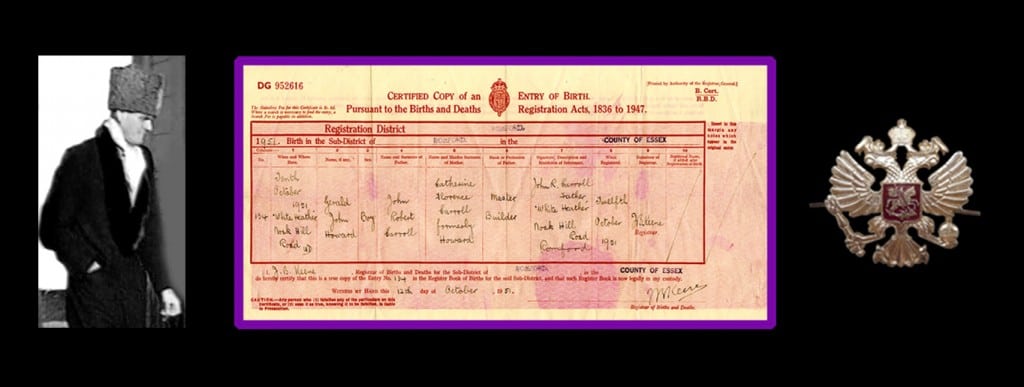 DG 952616
[Printed by Authority of the Registrar General.]
B. Cert.
R.B.D.
CERTIFIED COPY of an ENTRY OF BIRTH.
Pursuant to the Births and Deaths Registration Acts, 1836 to 1947.
The Statutory Fee for this Certificate is
Where a search is necessary to find the entry, a
Search Fee is payable in addition.
Insert in this
margin any
notes which
appear in the
original entry
Registration District ROMFORD
1951. Birth in the Sub-District of ROMFORD in the COUNTY OF ESSEX
Columns:— 1 2 3 4 5 6 7 8 9 10
No. When and Where Born. Name, if any. Sex. Name and Surname of Father. Name and Maiden Surname of Mother. Rank or Profession of Father. Signature, Description and Residence of Informant. When Registered. Signature of Registrar.
134 Tenth October 1951 "White Heather" Noak Hill Road Gerald John Howard Boy John Robert Carroll Catherine Florence Carroll formerly Howard Master Builder John R. Carroll Father "White Heather" Noak Hill Road Romford Twelfth October 1951 Keene Registrar
Keene, Registrar of Births and Deaths for the Sub-District of ROMFORD, in the COUNTY OF ESSEX
do hereby certify that this is a true copy of the Entry No. 134 in the Register Book of Births for the said Sub-District, and that such Register Book is now legally in my custody.
WITNESS MY HAND this 12th day of October, 1951.
CAUTION.—Any person who (1) falsifies any of the particulars on this
Certificate, or (2) uses it as true, knowing it to be falsified, is liable
to Prosecution.
Keene
Registrar of Births and Deaths.